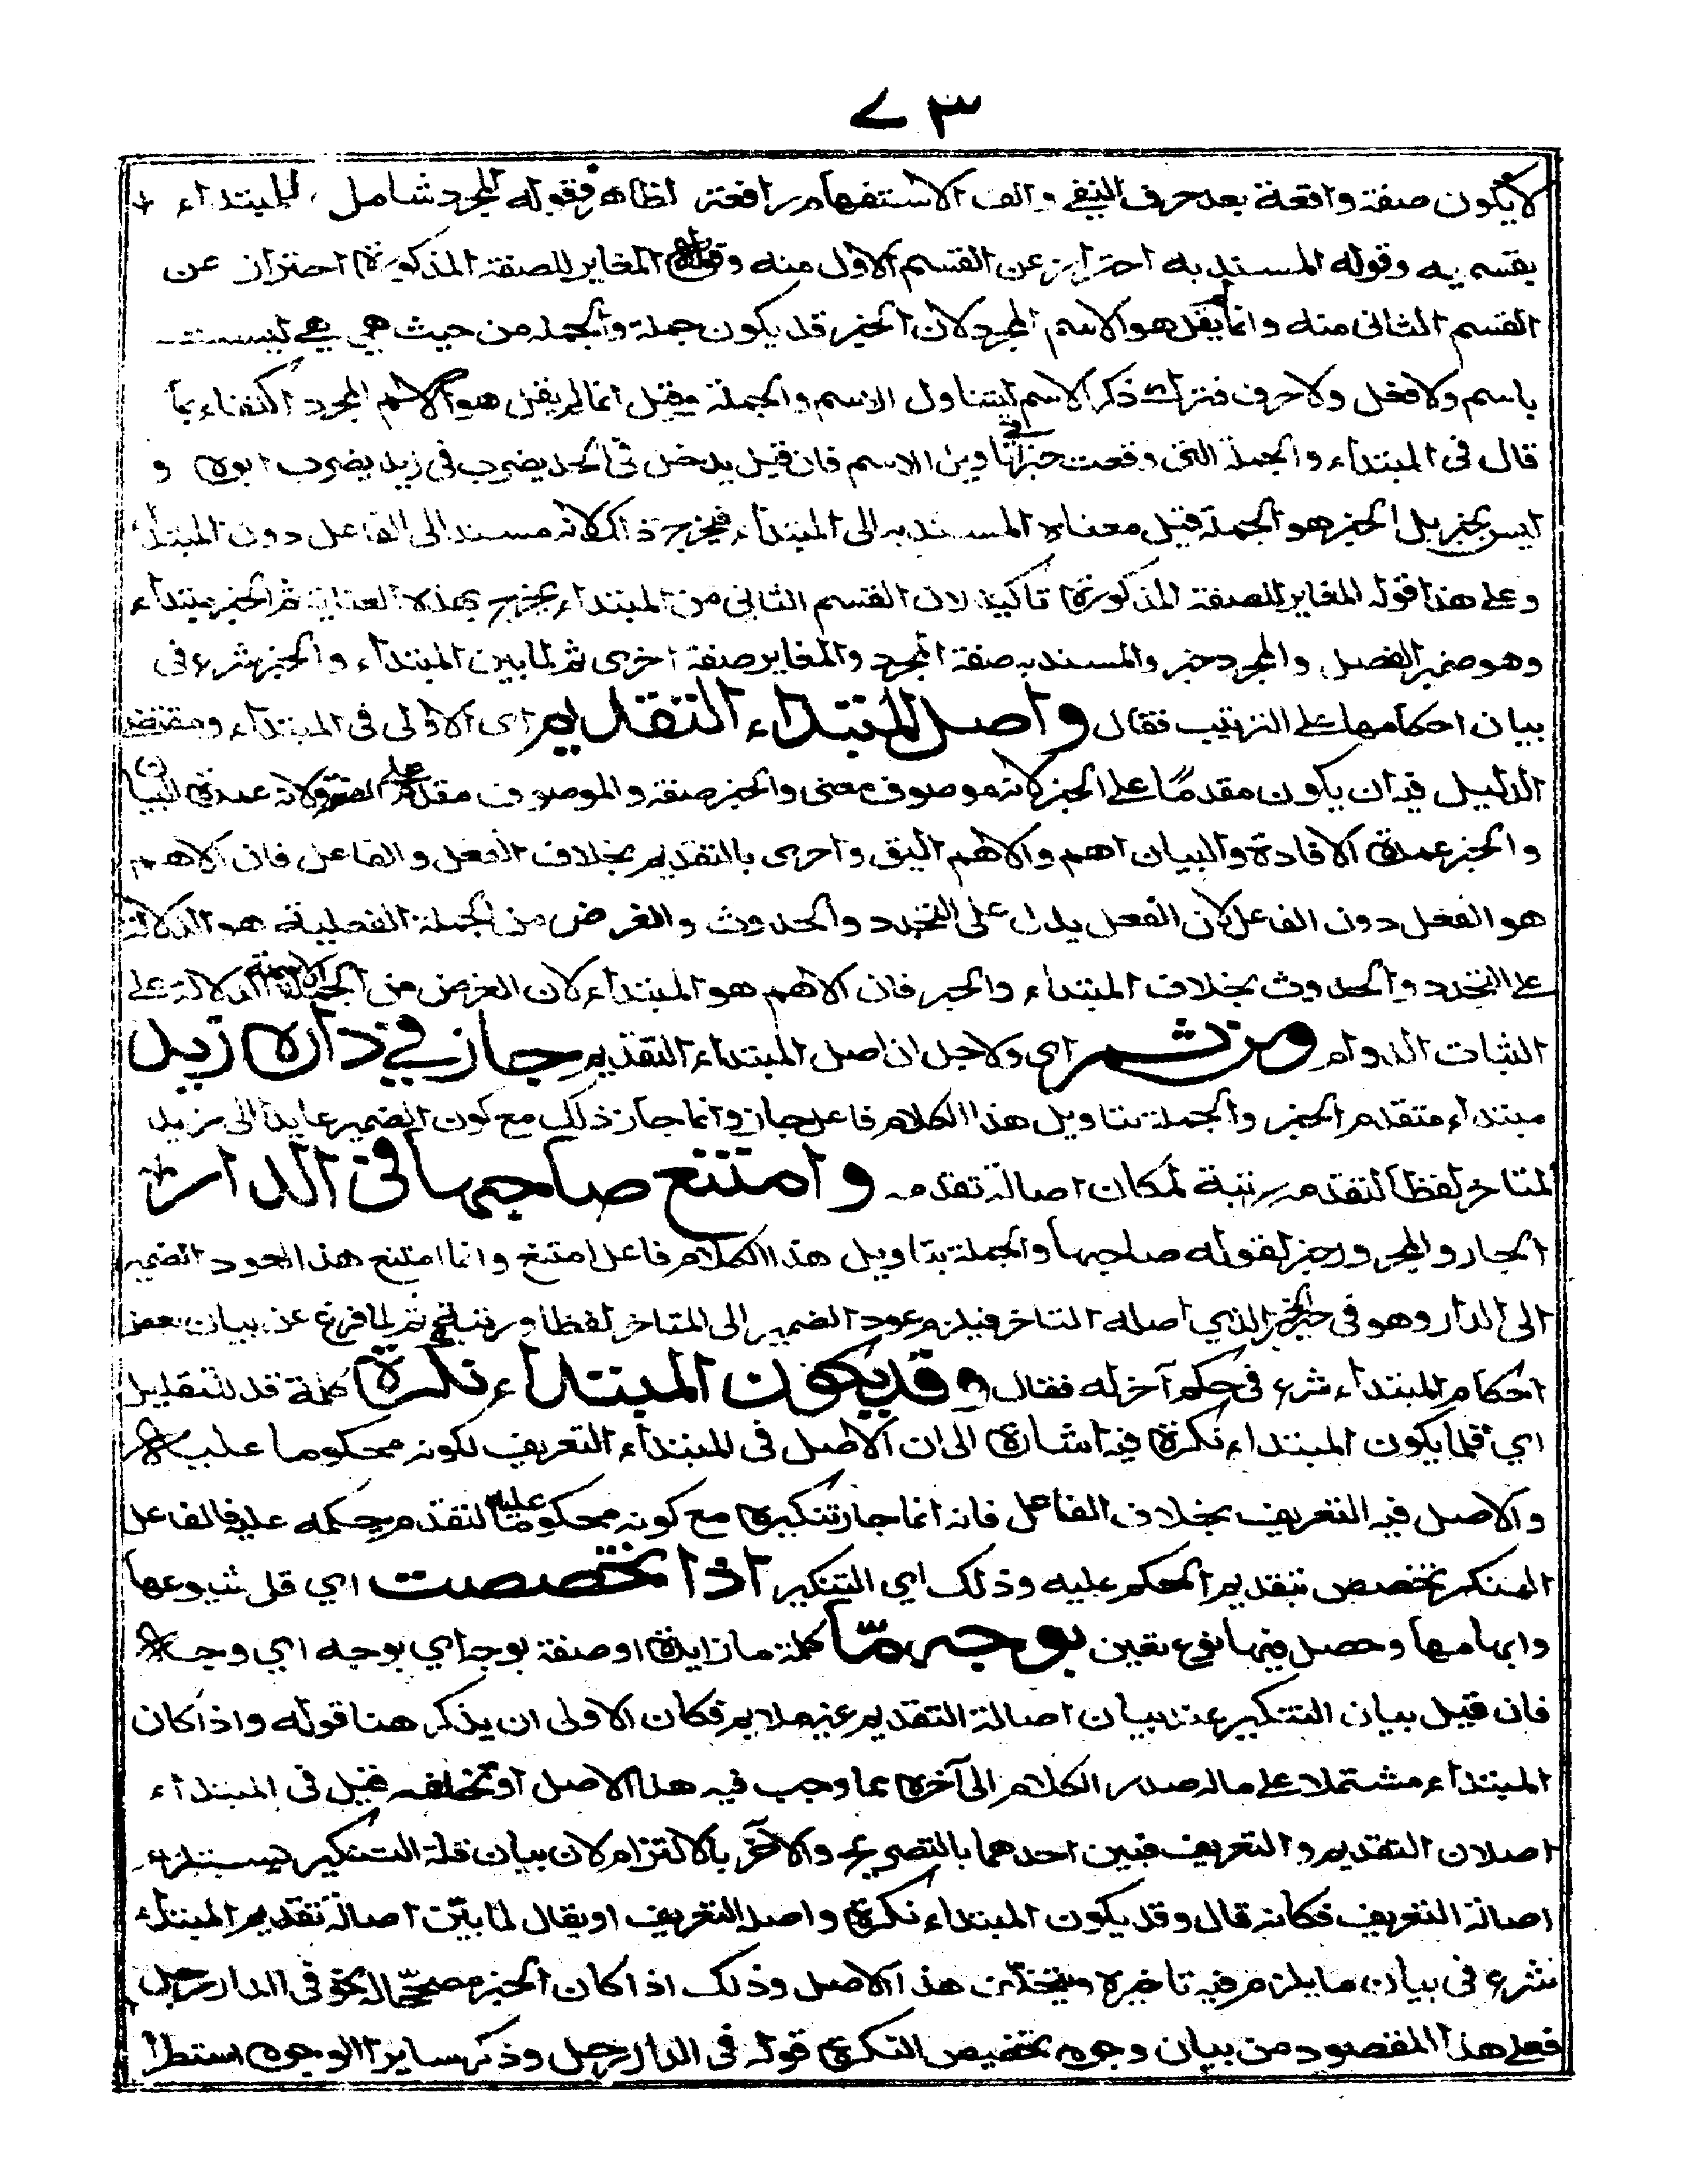 ٧٣
لا يكون صفة واقعة بعد حرف النفي والف الاستفهام رافعة لظاهر فقوله المجرد شامل للمبتداء
بقسميه وقوله المسند به احتراز عن القسم الاول منه وقوله المغاير للصفة المذكورة احتراز عن
القسم الثاني منه وانما لم يقل هو الاسم المجرد لان الخبر قد يكون جملة والجملة من حيث هي هي ليست
باسم ولا فعل ولا حرف فترك ذكر الاسم ليتناول الاسم والجملة وقيل انما لم يقل هو الاسم المجرد اكتفاء بما
قال في المبتداء والجملة التي وقعت خبرا في تاويل الاسم فان قيل يدخل في الحد يضرب في زيد يضرب ابوه و
ليس بخبر بل الخبر هو الجملة قيل معناه المسند به الى المبتداء فيخرج ذلك لانه مسند الى الفاعل دون المبتداء
وعلى هذا قوله المغاير للصفة المذكورة تاكيد لان القسم الثاني من المبتداء يخرج بهذه العناية ثم الخبر مبتداء
وهو ضمير الفصل والمجرد خبر والمسند به صفة المجرد والمغاير صفة اخرى ثم لما بين المبتداء والخبر شرع في
بيان احكامهما على الترتيب فقال واصل المبتداء التقديم اى الاولى في المبتداء ومقتضى
الدليل فيه ان يكون مقدما على الخبر لانه موصوف معنى والخبر صفة والموصوف مقدم على الصفة ولانه عمدة البيان
والخبر عمدة الافادة والبيان اهم والاهم اليق واحرى بالتقديم بخلاف الفعل والفاعل فان الاهم
هو الفعل دون الفاعل لان الفعل يدل على التجدد والحدوث والغرض من الجملة الفعلية هو الدلالة
على التجدد والحدوث بخلاف المبتداء والخبر فان الاهم هو المبتداء لان الغرض من الجملة الاسمية الدلالة على
الثبات الدوام ومن ثم اى ولاجل ان اصل المبتداء التقديم جاز في داره زيد
مبتداء متقدم الخبر والجملة بتاويل هذا الكلام فاعل جاز وانما جاز ذلك مع كون الضمير عايدا الى زيد
المتاخر لفظا لتقدمه رتبة لمكان اصالة تقدمه وامتنع صاحبها في الدار
الجار والمجرور خبر لقوله صاحبها والجملة بتاويل هذا الكلام فاعل امتنع وانما امتنع هذا لعود الضمير
الى الدار وهو في حيز الخبر الذي اصله التاخر فيلزم عود الضمير الى المتاخر لفظا ورتبة ثم لما فرغ عن بيان بعض
احكام المبتداء شرع في حكم آخر له فقال وقد يكون المبتداء نكرة كلمة قد للتقليل
اي قلما يكون المبتداء نكرة فيه اشارة الى ان الاصل في المبتداء التعريف لكونه محكوما عليه
والاصل فيه التعريف بخلاف الفاعل فانه انما جاز تنكيره مع كونه محكوما عليه لتقدم حكمه عليه فالفاعل
المنكر تخصص بتقديم الحكم عليه وذلك اي التنكير اذا تخصصت اي قل شيوعها
وابهامها وحصل فيها نوع تعين بوجه ما كلمة ما زايدة او صفة بوجه اي بوجه اي وجه
فان قيل بيان التنكير عند بيان اصالة التقديم غير ملايم فكان الاولى ان يذكر هنا قوله واذا كان
المبتداء مشتملا على ماله صدر الكلام الى آخره عما وجب فيه هذا الاصل او تخلفه قيل في المبتداء
اصلان التقديم والتعريف فبين احدهما بالتصريح والآخر بالالتزام لان بيان قلة التنكير يستلزم
اصالة التعريف فكانه قال وقد يكون المبتداء نكرة واصله التعريف او يقال لما بين اصالة تقديم المبتداء
شرع في بيان ما يلزم فيه تاخيره ويتخلف عن هذا الاصل وذلك اذا كان الخبر مصححا له نحو في الدار رجل
فعلى هذا المقصود من بيان وجوه تخصيص النكرة قوله في الدار رجل وذكر ساير الوجوه استطرا